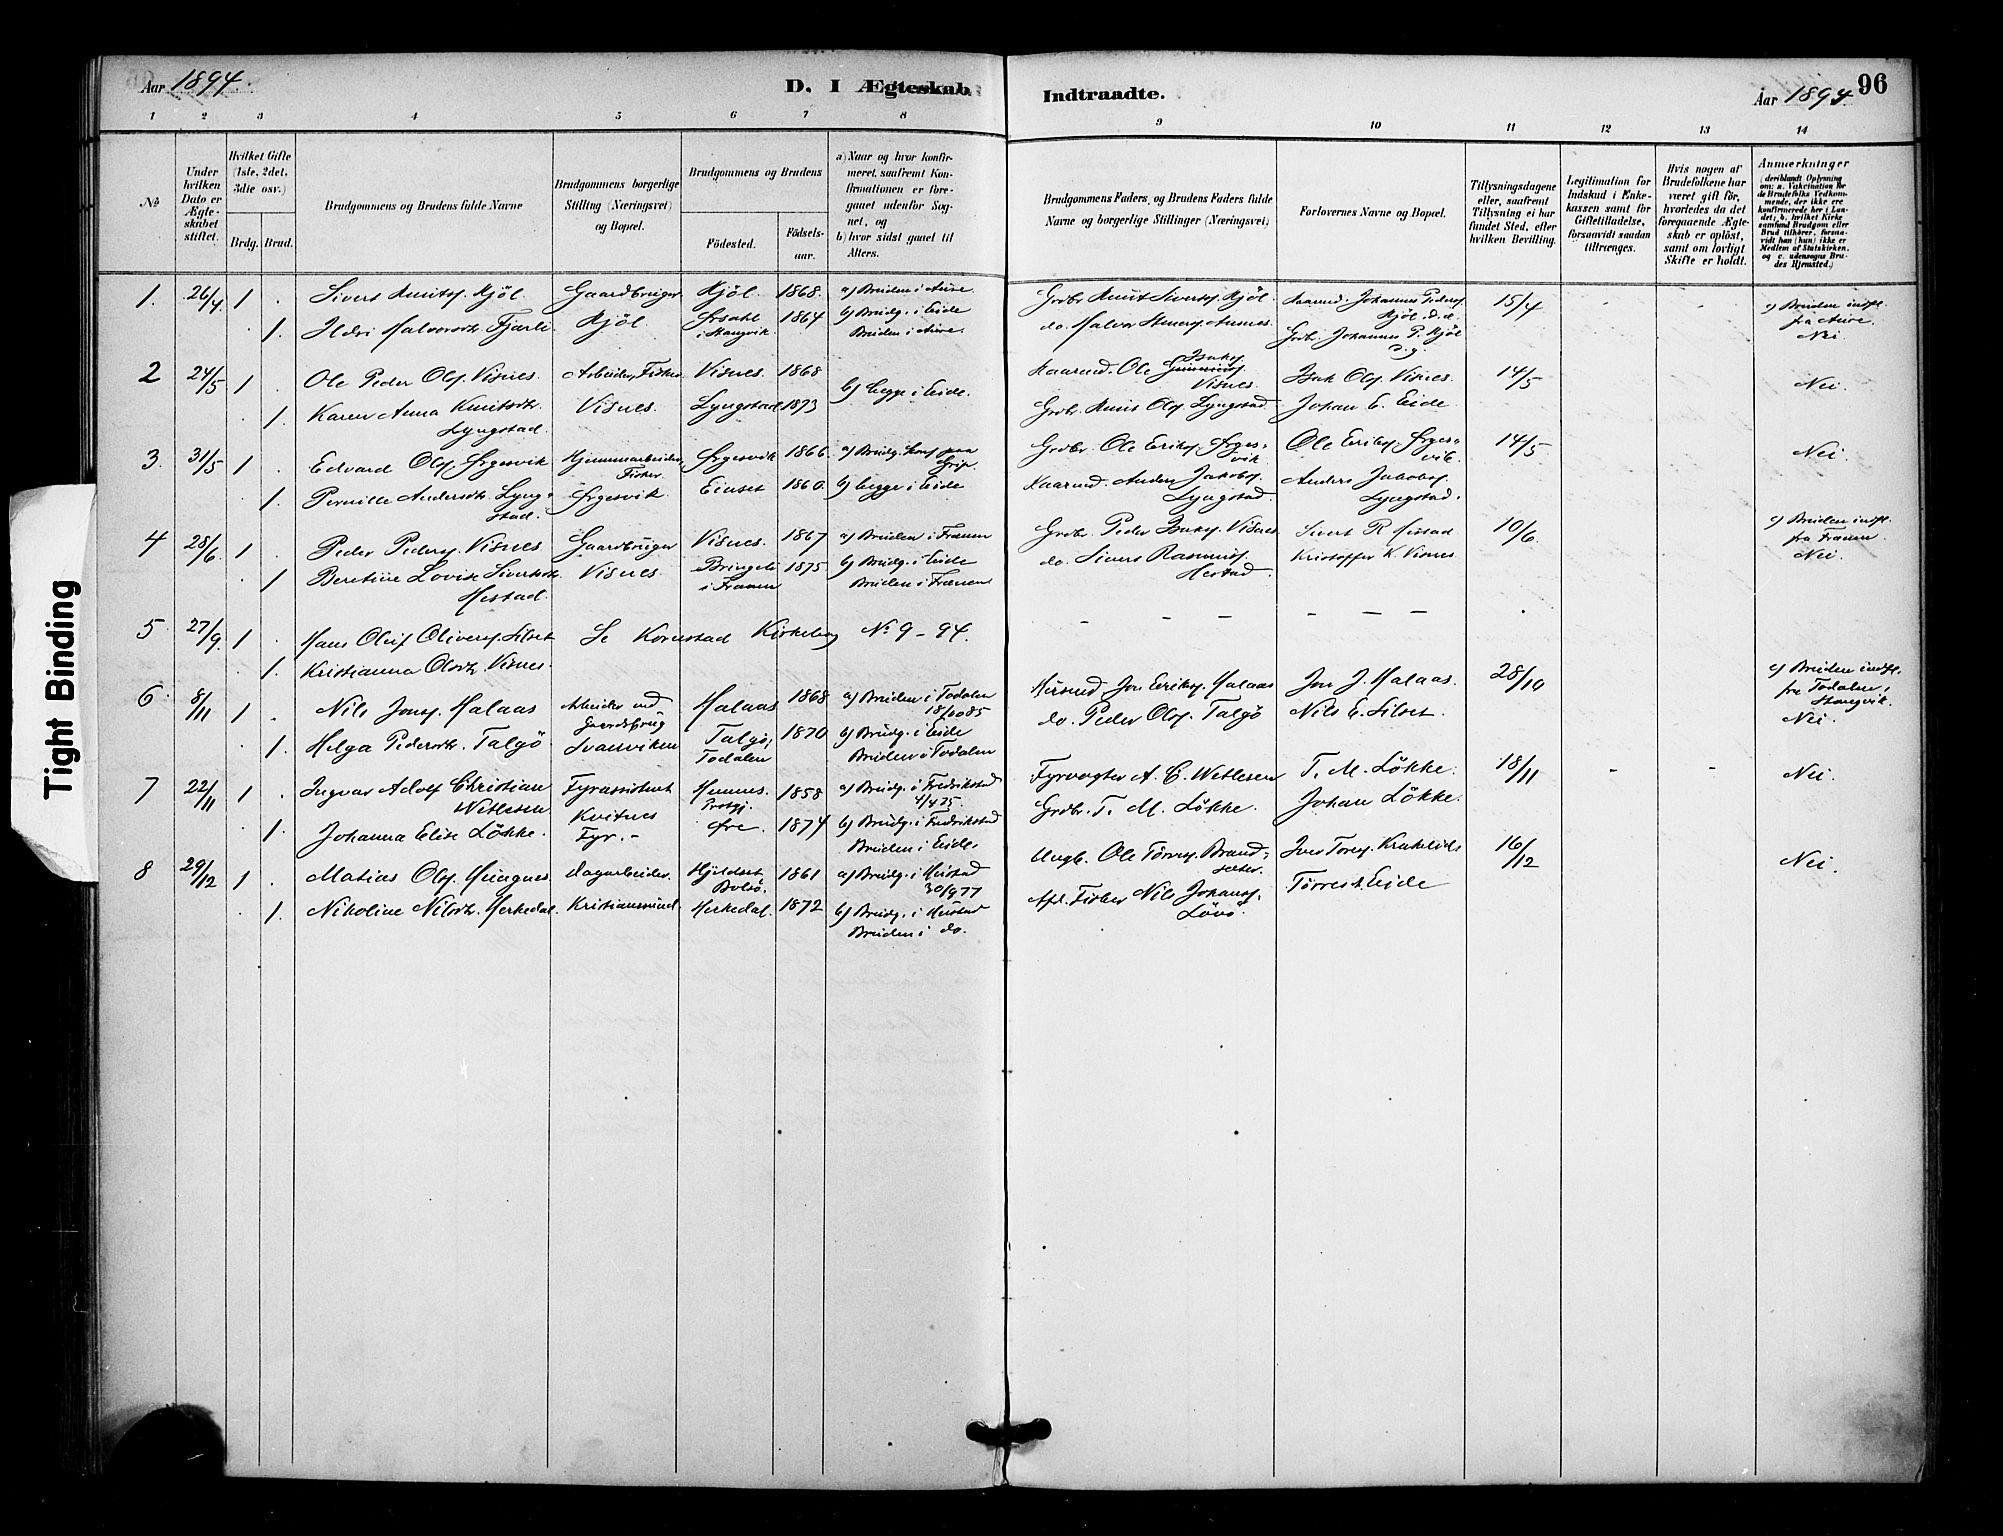 Aar 1894.
D. I Ægteskab
Indtraadte.
Aar 1894.
96
1 2 3 4 5 6 7 8
9 10 11 12 13 14
№
Under hvilken Dato er Ægteskabet stiftet.
Hvilket Gifte (1ste, 2det, 3die osv.)
Brdg. Brud.
Brudgommens og Brudens fulde Navne
Brudgommens borgerlige Stilling (Næringsvei) og Bopæl.
Brudgommens og Brudens
Födested.
Födselsaar.
a) Naar og hvor konfirmeret, saafremt Konfirmationen er foregaaet udenfor Sognet, og
b) hvor sidst gaaet til Alters.
Brudgommens Faders, og Brudens Faders fulde Navne og borgerlige Stillinger (Næringsvei)
Forlovernes Navne og Bopæl.
Tillysningsdagene eller, saafremt Tillysning ei har fundet Sted, efter hvilken Bevilling.
Legitimation for Indskud i Enkekassen samt for Giftetilladelse, forsaavidt saadan tiltrænges.
Hvis nogen af Brudefolkene har været gift för, hvorledes da det foregaaende Ægteskab er oplöst, samt om lovligt Skifte er holdt.
Anmerkninger
(deriblandt Oplysning om: a. Vakcination for de Brudefolks Vedkommende, der ikke ere konfirmerede her i Landet; b. hvilket Kirkesamfund Brudgom eller Brud tilhörer, forsaavidt han (hun) ikke er Medlem af Statskirken, og c. udensogns Brudes Hjemsted.)
1. 26/4 1 . Sivert Knuts. Kjöl Gaardbruger Kjöl. 1868. a) Bruden i Aure
1. Ildri Halvorsdt. Fjærli Kjöl. i Stangvik 1864 b) Brudg. i Eide
Bruden i Aure.
Grdbr. Knut Siverts. Kjöl Kaarmd. Johannes Peders. Kjöl. d. e. 15/4 c) Bruden indfl. fra Aure.
do. Halvor Grdbr. Johannes P. Kjöl d. y. Nei
2 24/5 1 . Ole Peder Ols. Visnes. Arbeider, Fisker Visnes. 1868
1. Karen Anna Knutsdt. Lyngstad. Visnes. Lyngstad 1873 b) begge i Eide.
Kaarmd. Ole Isaks. Visnes. Isak Ols. Visnes. 14/5 Nei.
Grdbr. Knut Ols. Lyngstad Johan E. Eide
3. 31/5 1 . Edvard Ols. Ørgesvik Hjemmearbeider, Fisker Ørgesvik 1866. a) Brudg. konf. paa Grip
1. Pernille Andersdt. Lyngstad. Ørgesvik Einset 1860. b) begge i Eide
Grdbr. Ole Eriks. Ørgesvik Ole Eriks. Ørgesvik. 14/5 Nei.
Kaarmd. Anders Jakobs. Lyngstad. Anders Jakobs. Lyngstad.
4 28/6 1 . Peder Peders. Visnes Gaardbruger Visnes. 1867 a) Bruden i Frænen
1. Beretine Lovise Sivertsdt. Hestad. Visnes. Bringsli i Frænen 1875 b) Brudg. i Eide
Bruden i Frænen
Grdbr. Peder Isaks. Visnes Sivert R. Hestad 10/6 c) Bruden indfl. fra Frænen.
do. Sivert Rasmus. Hestad. Kristoffer K. Visnes Nei.
5 27/9. 1 . Hans Oluf Olivers. Silset Se Kornstad Kirkebog No 9 - 94.
1. Kristianna Olsdt. Visnes.
6 8/11 1 . Nils Jons. Malaas Arbeider ved Gaardsbrug Malaas 1868 a) Bruden i Todalen 18/10 85
1. Helga Pedersdt. Talgö. Svanviken Talgö, Todalen 1870 b) Brudg. i Eide
Bruden i Todalen
Jon Eriks. Malaas Jon J. Malaas. 28/10 c) Bruden indfl. fra Todalen, Stangvik.
do. Peder Ols. Talgö Nils E. Silset. Nei.
7 22/11 1 . Ingvar Adolf Christian Wetlesen Fyrassistent Hemnes. Prstgj. 1858 a) Brudg. i Fredrikstad 4/4 75.
1. Johanna Elise Lökke. Kvitnes Fyr.- Øre. 1874 b) Brudg. i Fredrikstad
Bruden i Eide.
Fyrvogter A. C. Wetlesen T. M. Lökke. 18/11 - - Nei.
Grdbr. T. M. Lökke. Johan Lökke.
8 29/12 1 . Matias Ols. Dagarbeider. Hjeldset Bolsö. 1861 a) Brudg. i Hustad 30/9 77
1. Nikoline Nilsdt. Herkedal. Kristianssund. Herkedal. 1872 b) Brudg. i Hustad
Bruden i do.
Ungk. Ole Törres. Brandsæter. Iver Tores. Krakeli 16/12 Nei.
Afd. Fisker Nils Johans. Lövö. Törres Eide
Tight Binding